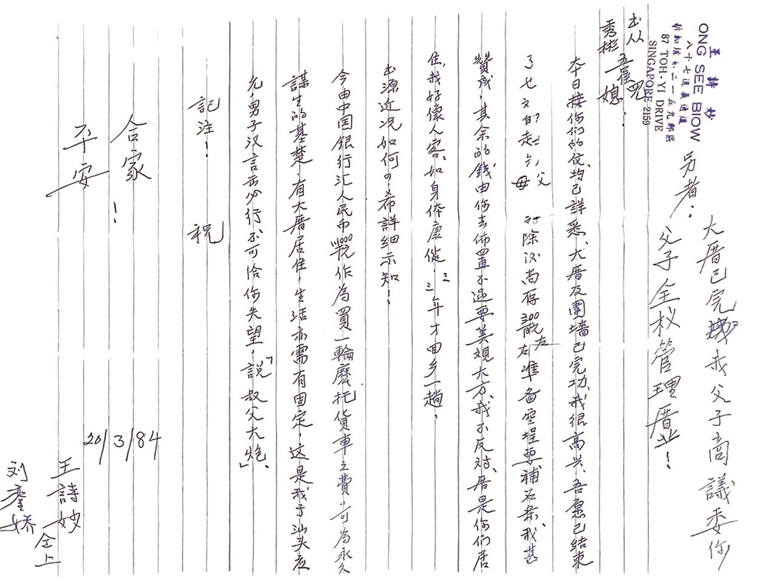 王詩妙
ONG SEE BIOW
八十七道義通道
新加坡二一五九郵區
87 TOH-YI DRIVE
SINGAPORE-2159
另者：大厝已完 我父子商議委你
父子全权管理厝业！
出从
秀彬 媳：
本日接你们的信,均已詳悉、大厝及圍墙已完功,我很高兴、吾愿已結束
了 父母 尚存300 左右準备空埕要補石条、我甚
賛成,其余的錢由你去佈置不過要美观大方,我不反对、厝是你們居
住,我好像人客、如身体康健,二三年才回乡一趟,
出源近况如何?希詳細示知！
今由中国银行汇人民币 作為買一輪 托貨車之費,可為永久
謀生的基楚,有大厝居住,生活亦需有固定,这是我于汕头应
允,男子汉言而必行,不可给你失望,說「叔父大炮」,
記注！ 祝
合家！
平安
20/3/84
王詩妙
刘銮娇 仝上